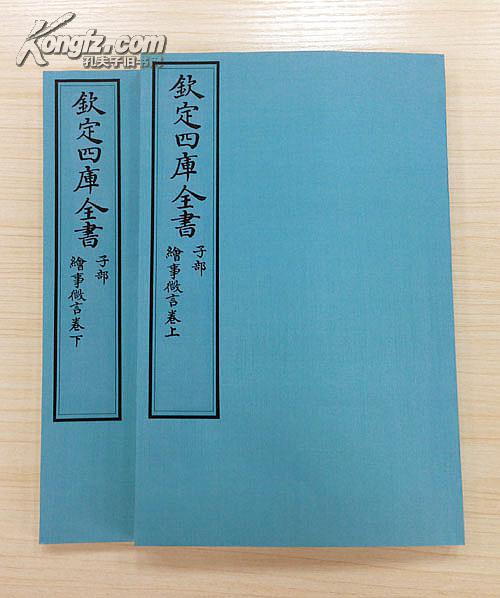 Kongfz.com
孔夫子旧书网
欽定四庫全書
子部
繪事微言卷上
欽定四庫全書
子部
繪事微言卷下